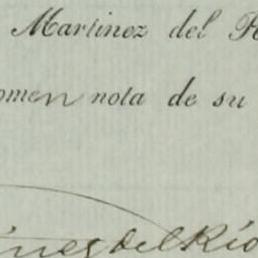 Martinez del R
omen nota de su
inez del Río